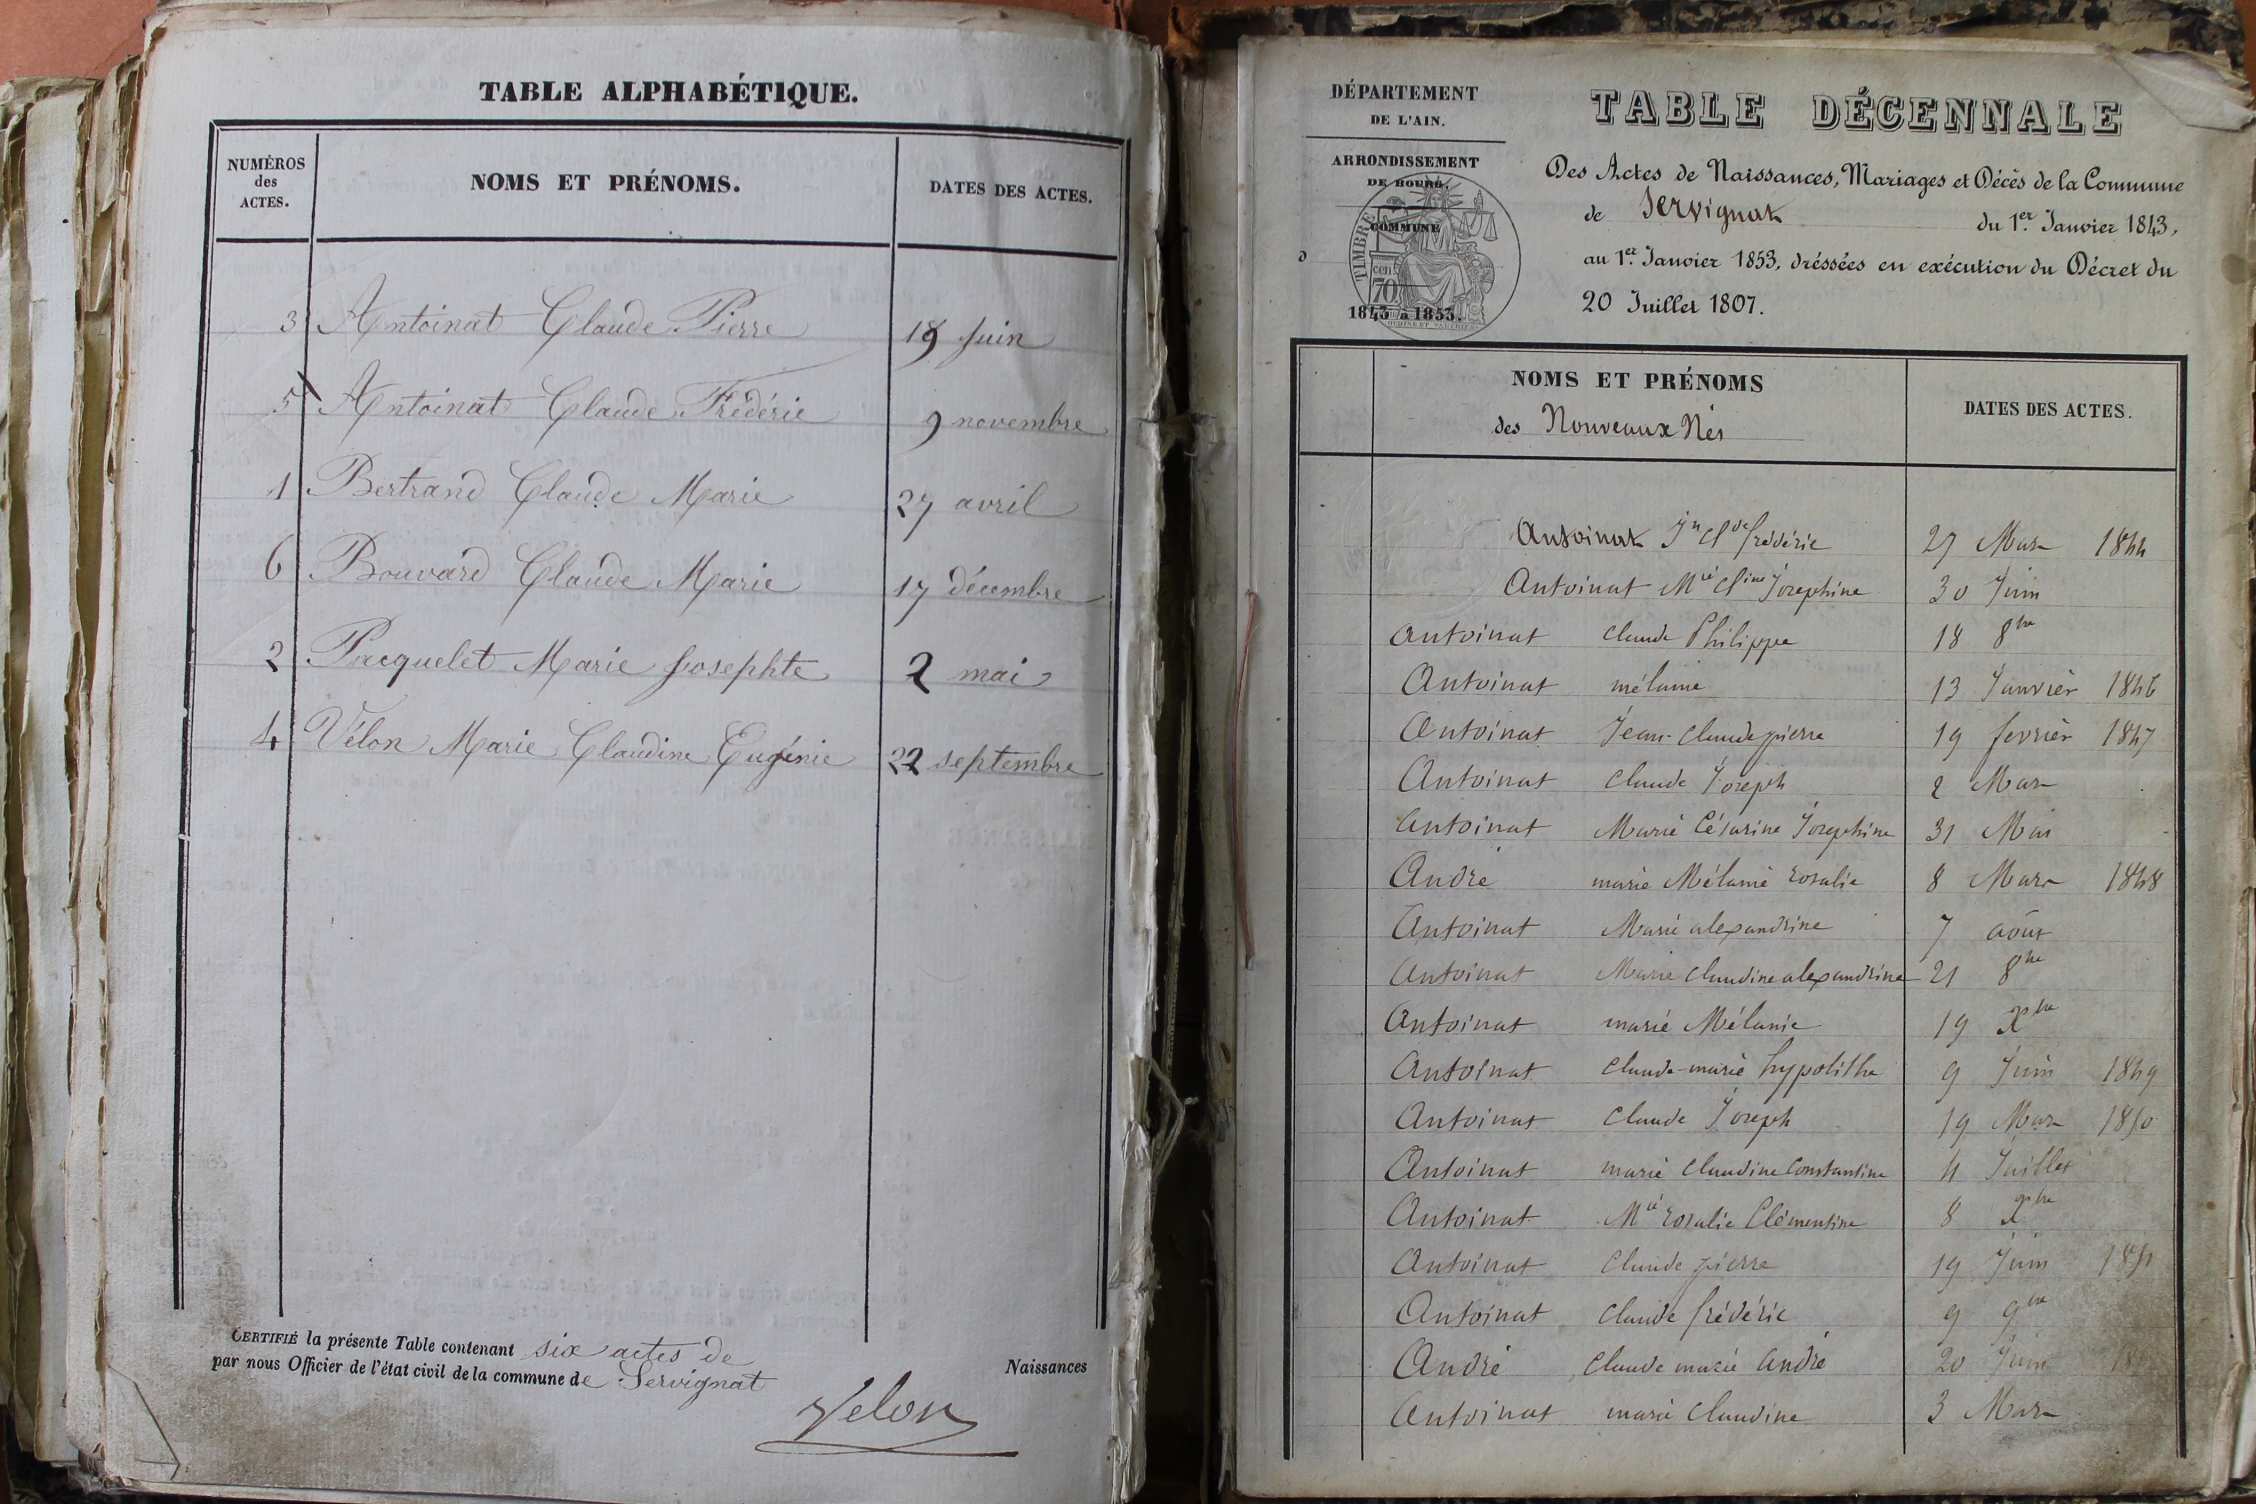 TABLE ALPHABÉTIQUE.
NUMÉROS des ACTES. NOMS ET PRÉNOMS. DATES DES ACTES.
3 Antoinat Claude Pierre 19 Juin
5 Antoinat Claude Frédéric 9 novembre
1 Bertrand Claude Marie 27 avril
6 Bouvard Claude Marie 17 décembre
2 Pacquelet Marie Josephte 2 mai
4 Vélon Marie Claudine Eugénie 22 septembre
CERTIFIÉ la présente Table contenant six actes de Naissances
par nous Officier de l'état civil de la commune de Servignat
Velon
DÉPARTEMENT
DE L'AIN.
ARRONDISSEMENT
DE BOURG.
COMMUNE
TIMBRE
70 cen.
1843 à 1853.
TABLE DÉCENNALE
Des Actes de Naissances, Mariages et Décès de la Commune
de Servignat du 1er. Janvier 1843,
au 1er. Janvier 1853, dréssées en exécution du Décret du
20 Juillet 1807.
NOMS ET PRÉNOMS
des Nouveaux Nés
DATES DES ACTES.
Antoinat Jn Cl de frédéric 27 Mars 1844
Antoinat Mie Cl ine Josephine 30 Juin
Antoinat Claude Philippe 18 8bre
Antoinat mélanie 13 Janvier 1846
Antoinat Jean-Claude pierre 19 fevrier 1847
Antoinat Claude Joseph 2 Mars
Antoinat Marie Césarine Josephine 31 Mai
André marie Mélanie rosalie 8 Mars 1848
Antoinat Marie alexandrine 7 août
Antoinat Marie Claudine alexandrine 21 8bre
Antoinat marie Mélanie 19 Xbre
Antoinat Claude-marie hypolithe 9 Juin 1849
Antoinat Claude Joseph 19 Mars 1850
Antoinat marie Claudine Constantine 4 Juillet
Antoinat Mie rosalie Clémentine 8 Xbre
Antoinat Claude pierre 19 Juin 1851
Antoinat Claude frédéric 9 9bre
André Claude marie André 20 Juin
Antoinat marie Claudine 3 Mars